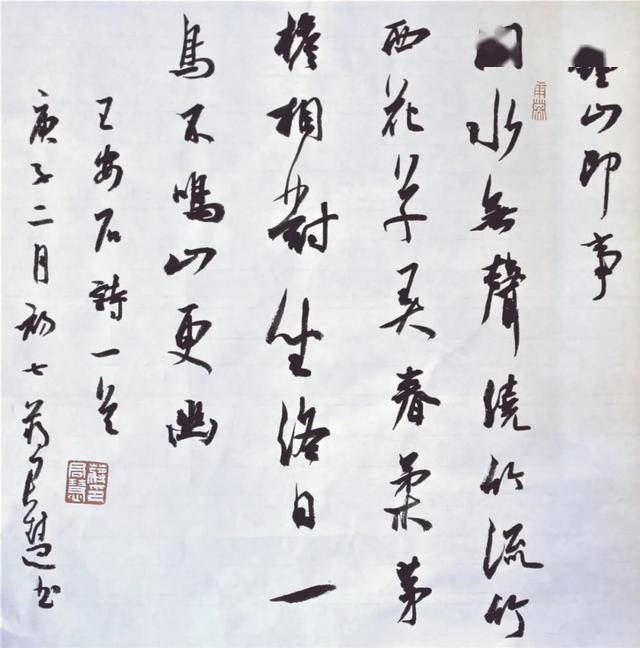 山即事
水無聲繞竹流竹
西花草弄春柔茅
檐相對坐終日一
鳥不鳴山更幽
王安石詩一首
庚子二月初七蒋君慧书
蔣印君慧